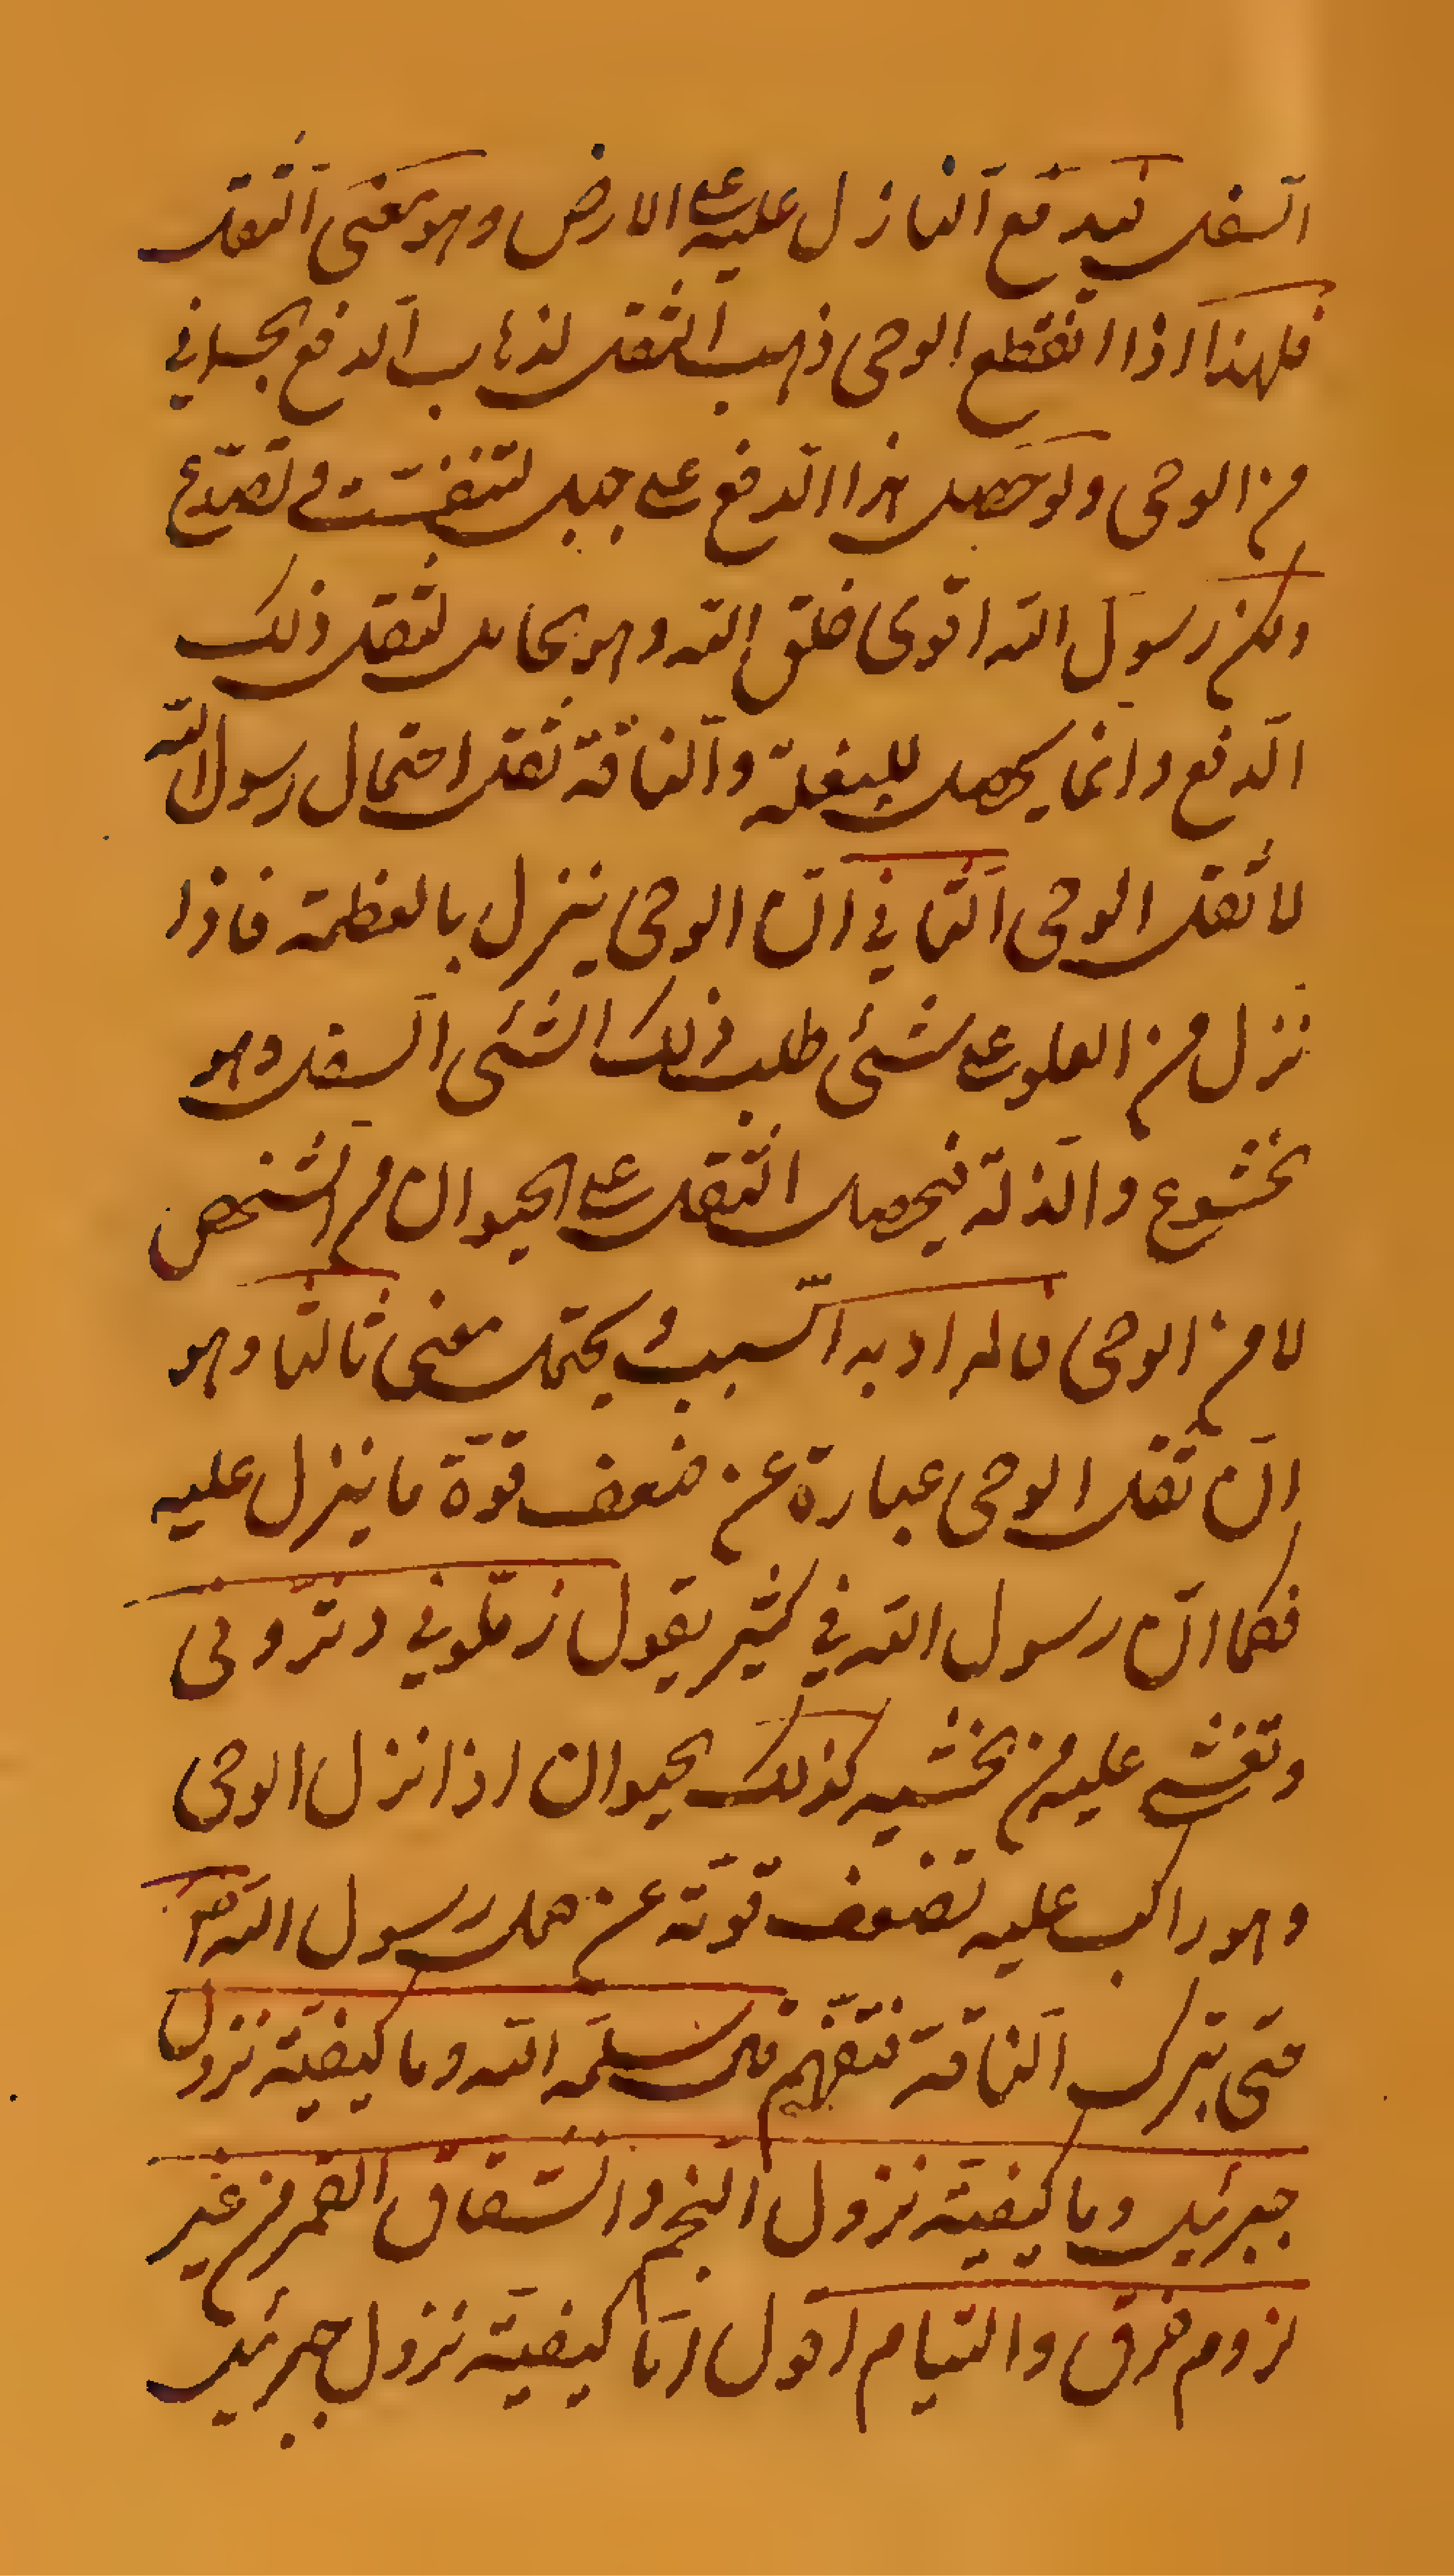 السفل فيدفع النازل عليه على الارض وهو معنى الثقل
فلهذا اذا انقطع الوحى ذهب الثقل لذهاب الدفع الجسدانى
من الوحى ولو حصل هذا الدفع على جبل لتفتت وتصدع
ولكن رسول الله اقوى خلق الله وهو بحامل لثقل ذلك
الدفع وانما يحصل للبغلة والناقة ثقل احتمال رسول الله
لا ثقل الوحى الثانى ان الوحى ينزل بالعظمة فاذا
نزل من العلو على شىء طلب ذلك الشىء السفل وهو
الخشوع والذلة فيحصل الثقل على الحيوان من الشخص
لا من الوحى فالمراد به السبب ويحتمل معنى ثالثا وهو
ان ثقل الوحى عبارة عن ضعف قوة ما ينزل عليه
فكما ان رسول الله فى كثير يقول زملونى دثرونى
وتغشى عليه من الخشية كذلك الحيوان اذا نزل الوحى
وهو راكب عليه تضعف قوته عن حمل رسول الله ص
حتى تبرك الناقة فتفهم قال سلمه الله وما كيفية نزول
جبرئيل وما كيفية نزول النجم وانشقاق القمر من غير
لزوم خرق والتيام اقول اما كيفية نزول جبرئيل